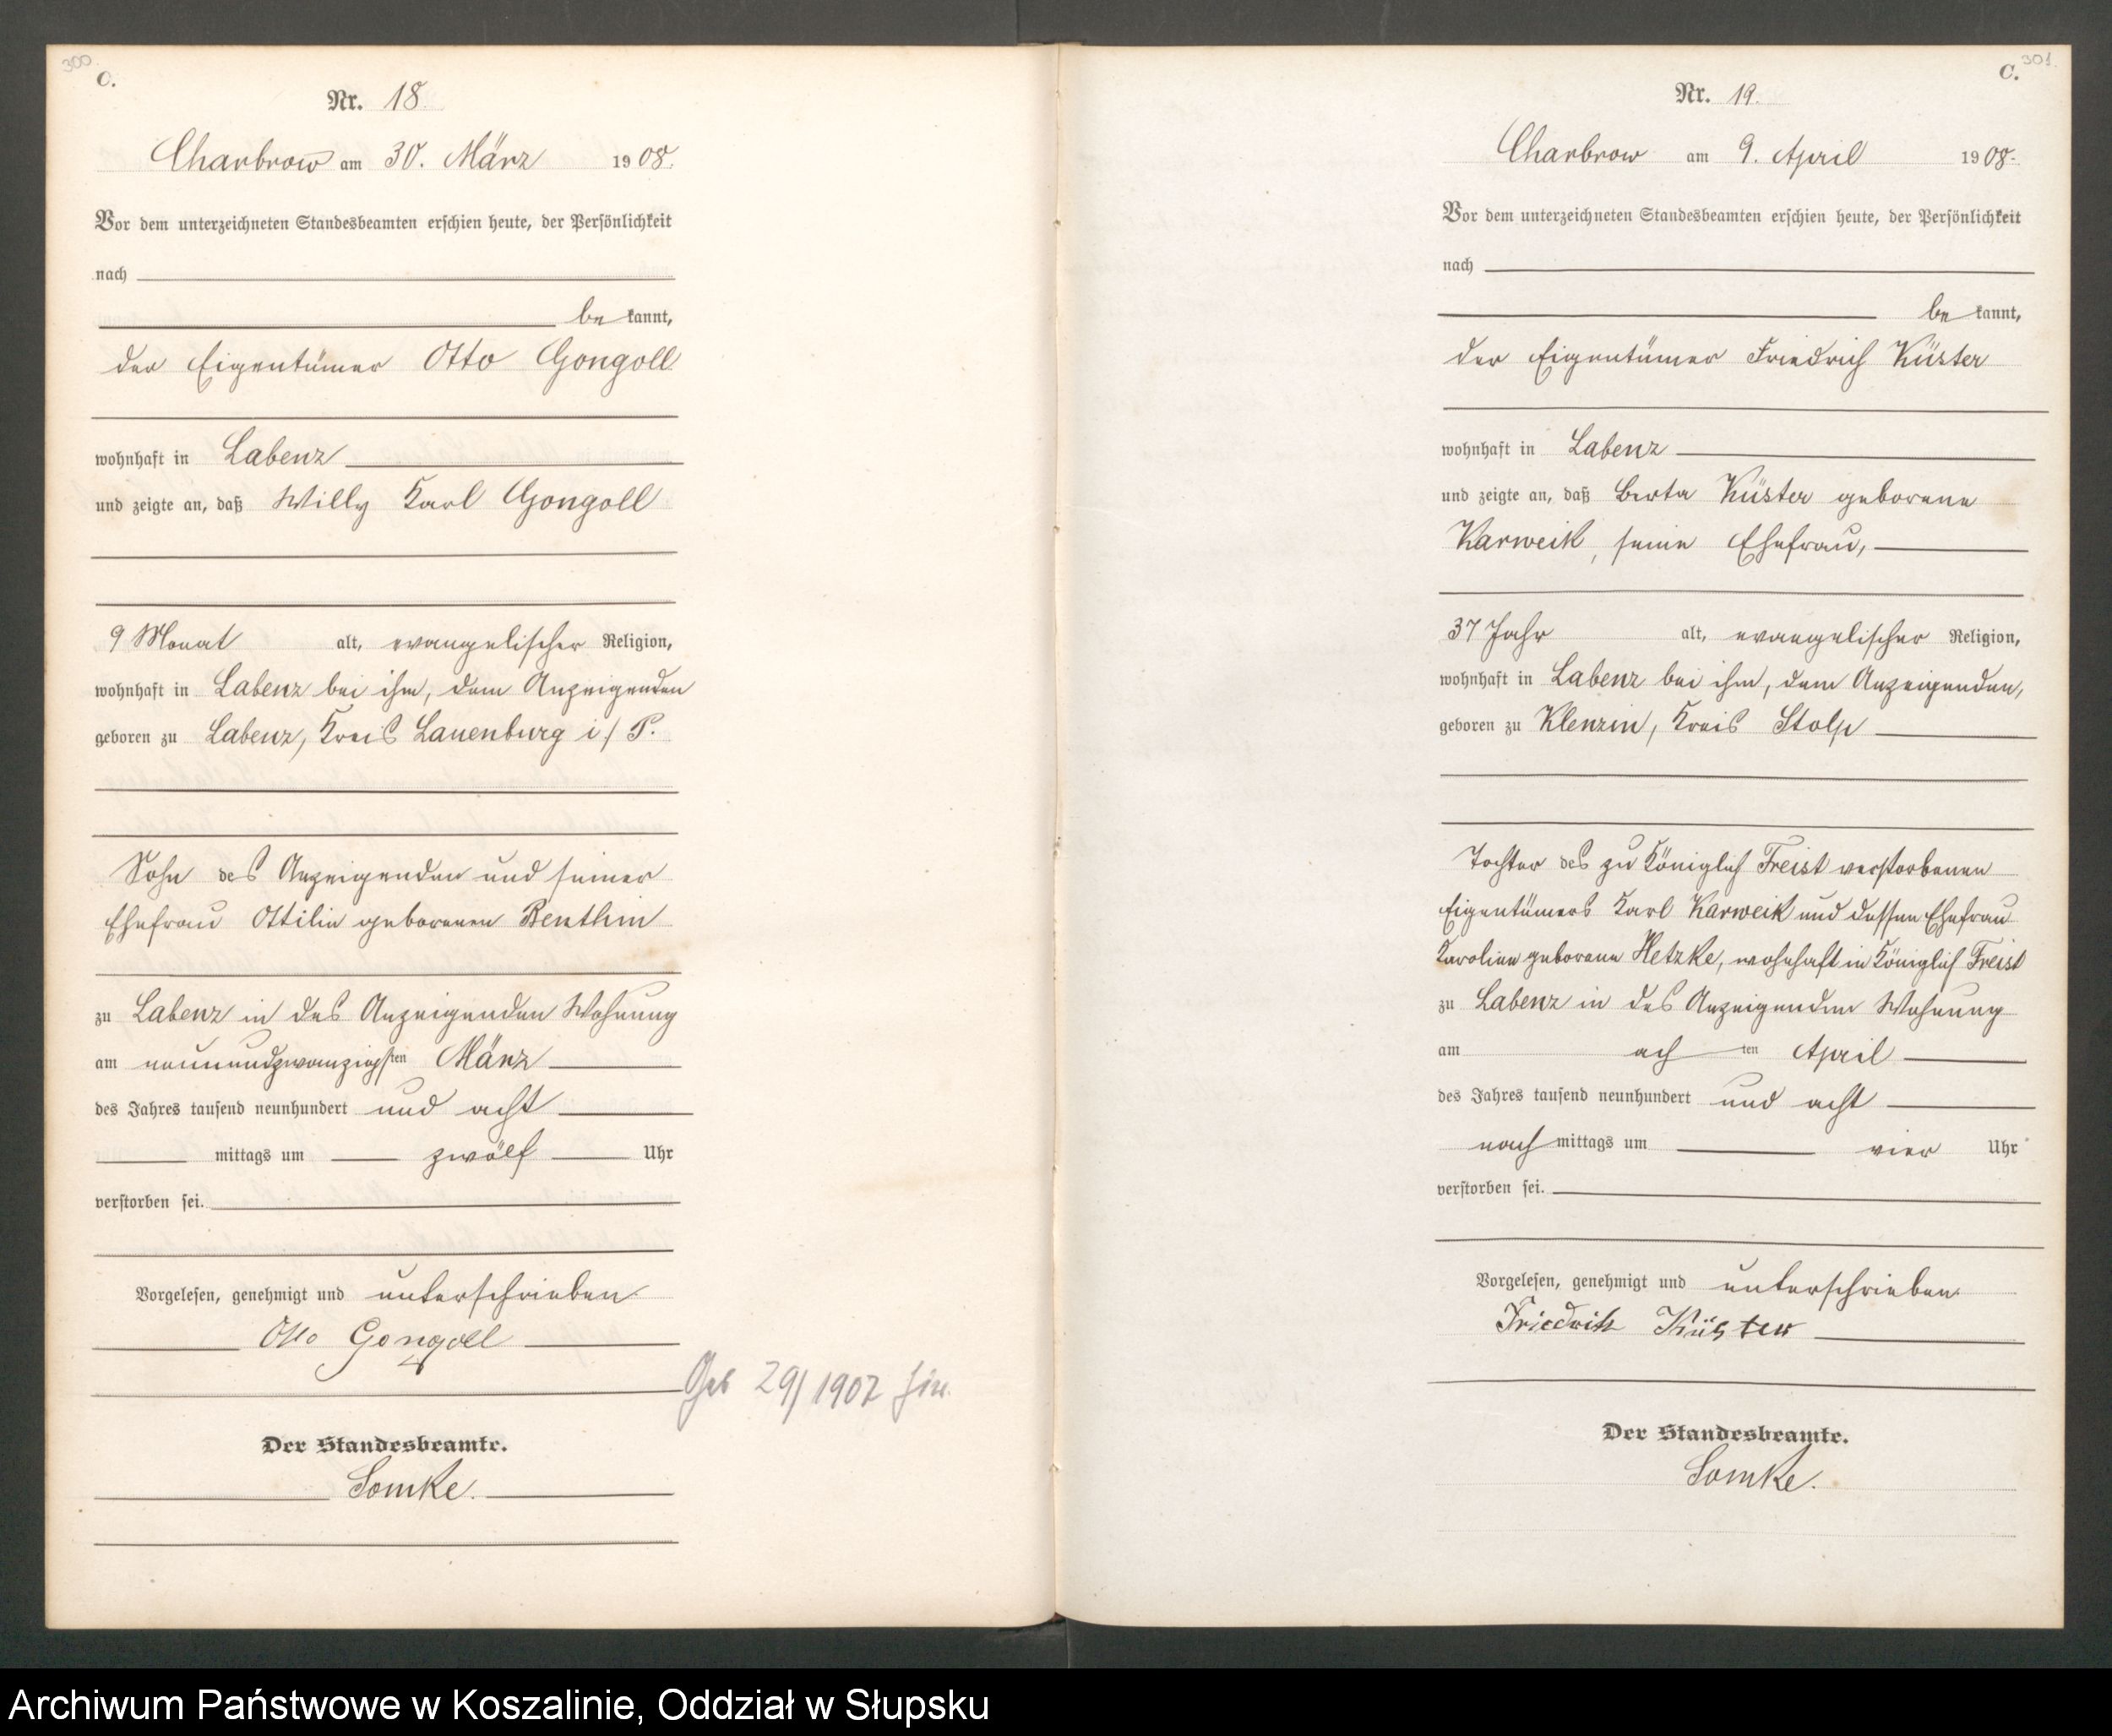 300
C.
Nr. 18.
Charbrow am 30. März 1908.
Vor dem unterzeichneten Standesbeamten erschien heute, der Persönlichkeit
nach
be kannt,
der Eigentümer Otto Gongoll
wohnhaft in Labenz
und zeigte an, daß Willy Karl Gongoll
9 Monat alt, evangelischer Religion,
wohnhaft in Labenz bei ihm, dem Anzeigenden
geboren zu Labenz, Kreis Lauenburg i/P.
Sohn des Anzeigenden und seiner
Ehefrau Ottilie geborenen Benthin
zu Labenz in des Anzeigenden Wohnung
am neunundzwanzigsten März
des Jahres tausend neunhundert und acht
mittags um zwölf Uhr
verstorben sei.
Vorgelesen, genehmigt und unterschrieben
Otto Gongoll
Geb 29/1907 hier.
Der Standesbeamte.
Somke.
301.
C.
Nr. 19.
Charbrow am 9. April 1908.
Vor dem unterzeichneten Standesbeamten erschien heute, der Persönlichkeit
nach
be kannt,
der Eigentümer Friedrich Küster
wohnhaft in Labenz
und zeigte an, daß Berta Küster geborene
Karweik, seine Ehefrau,
37 Jahr alt, evangelischer Religion,
wohnhaft in Labenz bei ihm, dem Anzeigenden,
geboren zu Klenzin, Kreis Stolp
Tochter des zu Königlich Freist verstorbenen
Eigentümers Karl Karweik und dessen Ehefrau
Karoline geborene Hetzke, wohnhaft in Königlich Freist
zu Labenz in des Anzeigenden Wohnung
am ach ten April
des Jahres tausend neunhundert und acht
nach mittags um vier Uhr
verstorben sei.
Vorgelesen, genehmigt und unterschrieben.
Friedrich Küster
Der Standesbeamte.
Somke.
Archiwum Państwowe w Koszalinie, Oddział w Słupsku